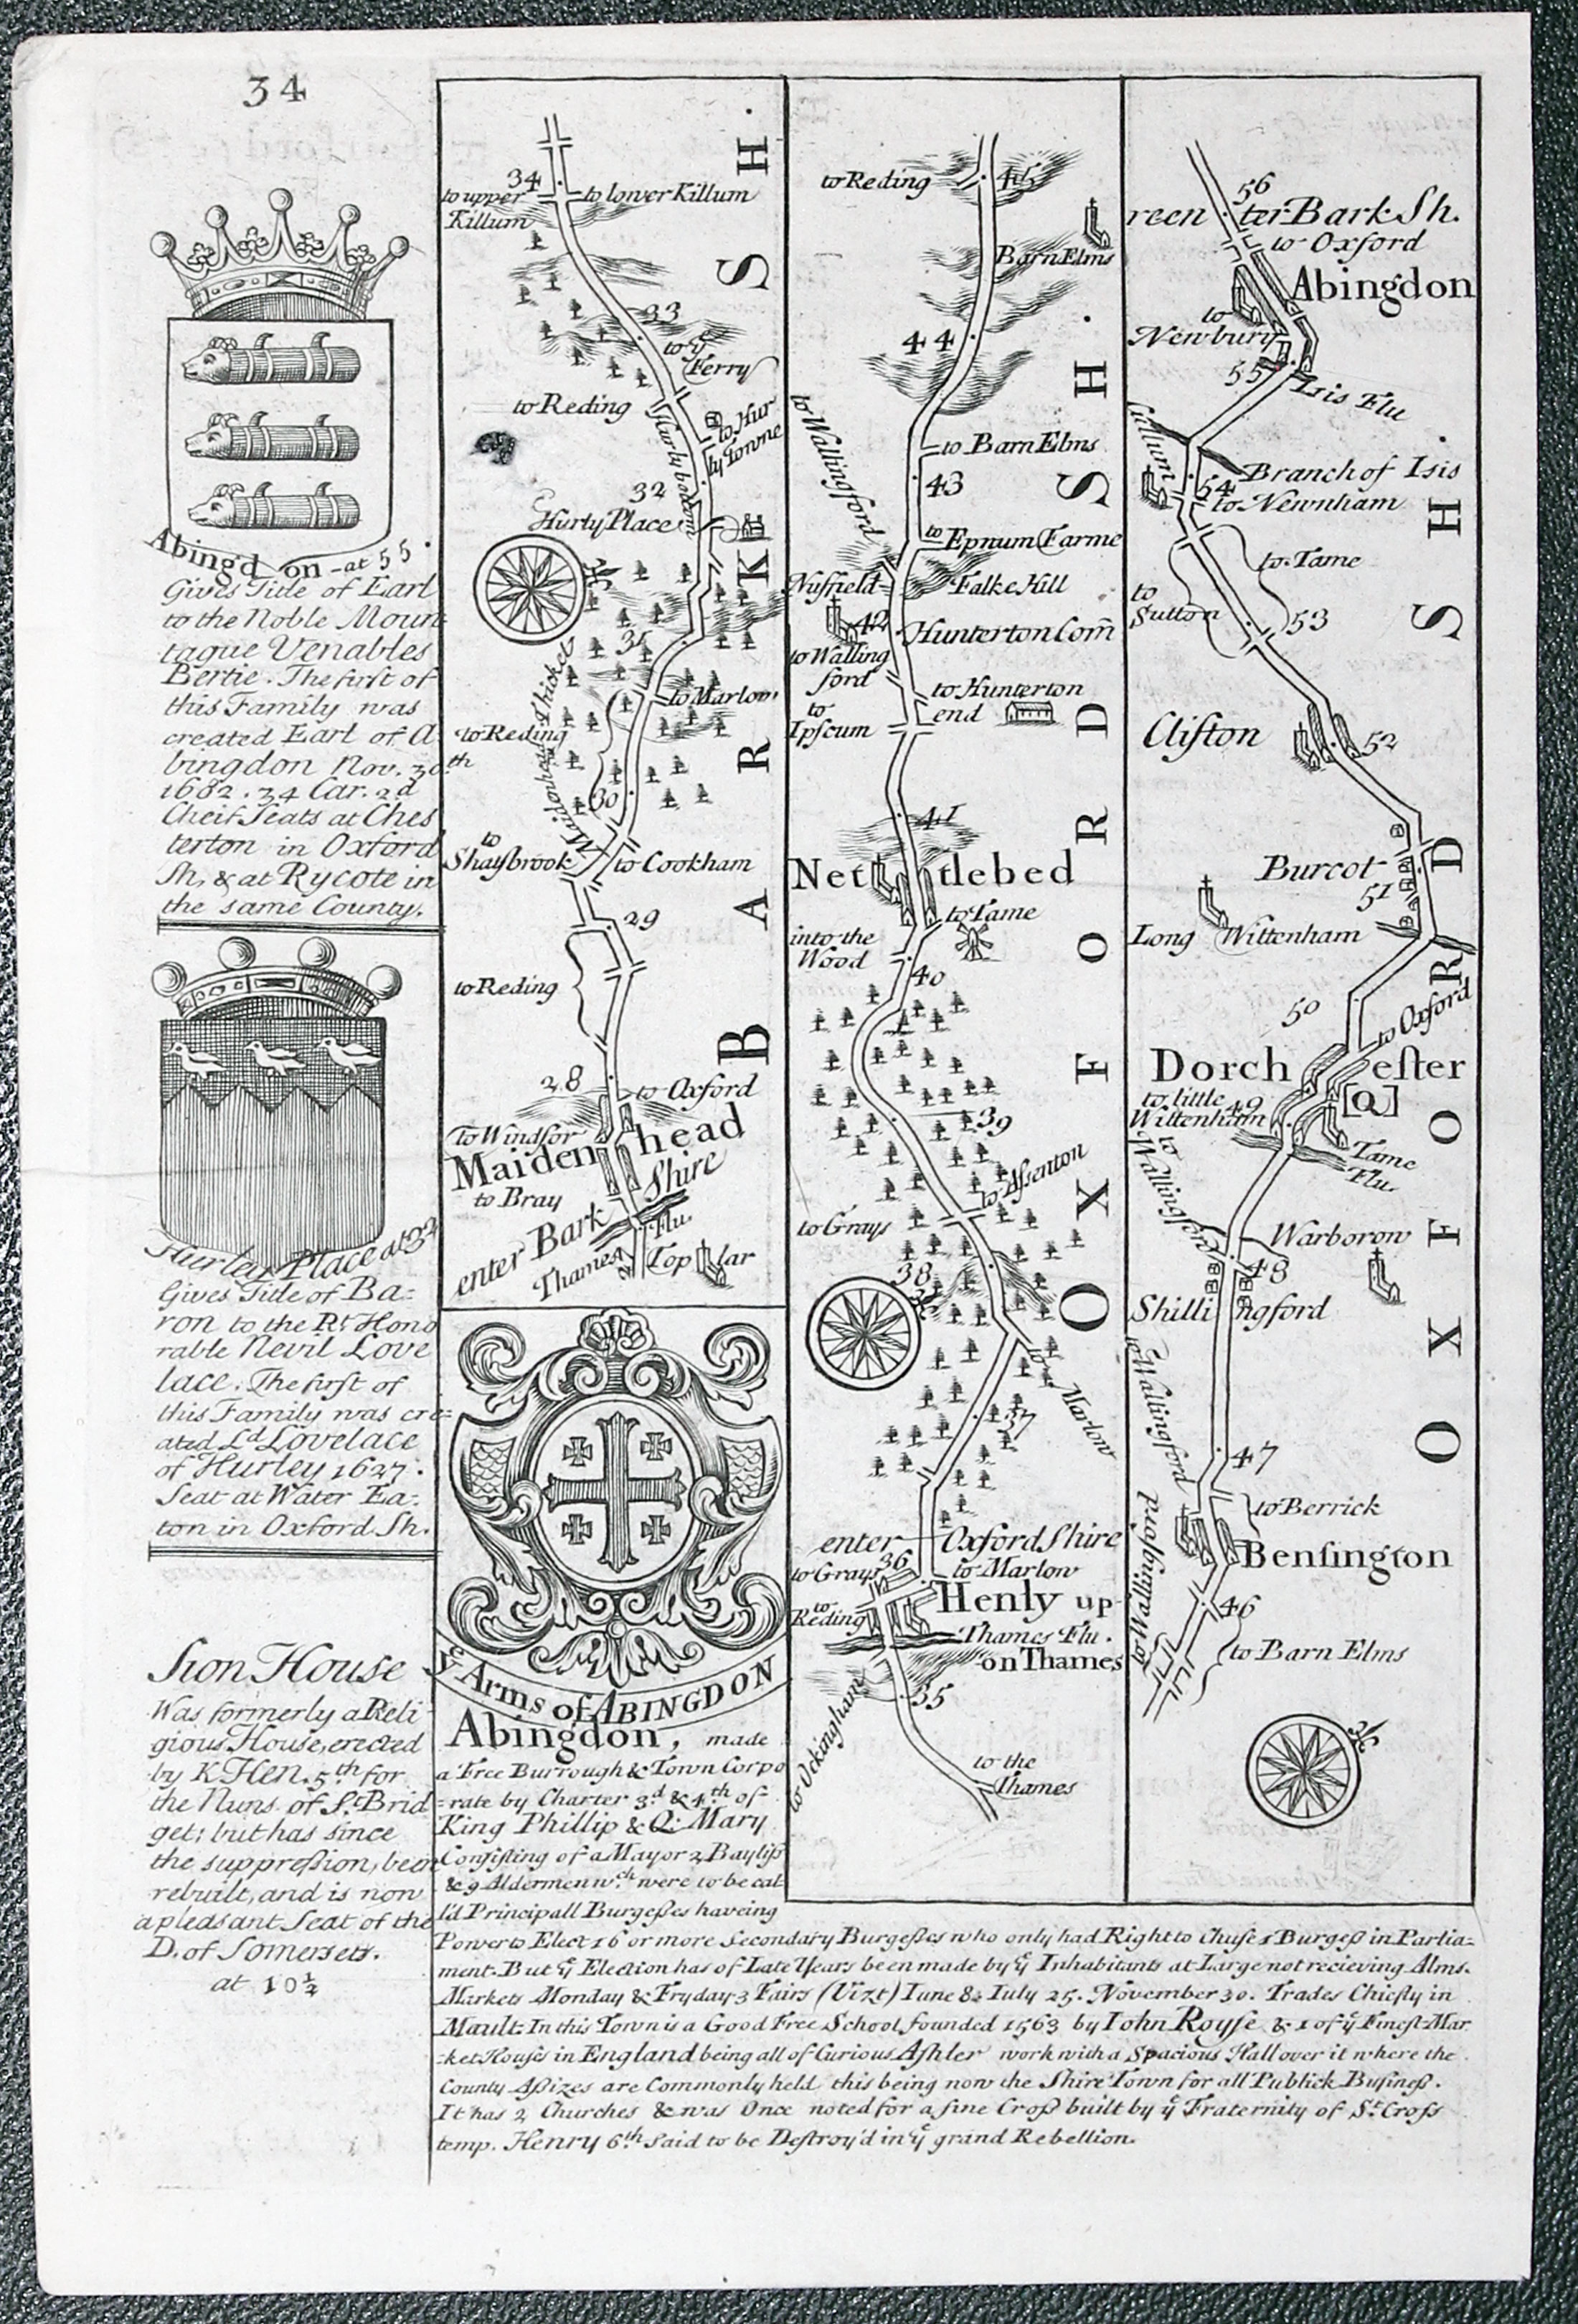 34
Abingd on - at 55.
Gives Title of Earl
to the Noble Moun
tague Venables
Bertie. The first of
this Family was
created Earl of A
bingdon Nov. 30th
1682. 34 Car. 2d
Cheif Seats at Ches
terton in Oxford
Sh. & at Rycote in
the same County.
Hurley Place at 32
Gives Title of Ba=
ron to the Rt. Hono
rable Nevil Love
lace. The first of
this Family was cre=
ated Ld. Lovelace
of Hurley 1627.
Seat at Water Ea=
ton in Oxford Sh.
Sion House
Was formerly a Reli
gious House, erected
by K. Hen. 5th. for
the Nuns of St. Brid
get; but has since
the suppreſsion, been
rebuilt, and is now
a pleasant Seat of the
D. of Somersett.
at 10½
BARK SH.
34
to upper
Killum
to lower Killum
33
to ye
Ferry
to Reding
to Hur
ly Towne
Hurly bottom
32
Hurly Place
31
Maidenhead Thicket
to Marlow
to Reding
30
to
Shaysbrook
to Cookham
29
to Reding
28
to Oxford
To Windsor
Maiden head
to Bray
enter Bark Shire
Thames Flu.
Top lar
OXFORD SH.
to Reding
45
Barn Elms
44
to Wallingford
to Barn Elms
43
to
Epnum Farme
Nuffield
Falke Hill
42
Hunterton Com̄
to Walling
ford
to Hunterton
end
to
Ipscum
41
Net tlebed
to Tame
into the
Wood
40
39
to Aſsenton
to Grays
38
to Marlow
37
enter Oxford Shire
to Grays
36
to Marlow
to
Reding
Henly up
Thames Flu.
on Thames
35
to Ockingham
to the
Thames
OXFORD SH.
56
reen ter Bark Sh.
to Oxford
Abingdon
to
Newbury
55
Isis Flu
Cullum
Branch of Isis
54
to Newnham
to Tame
to
Sutton
53
Clifton
52
Burcot
51
Long Wittenham
50
to Oxford
Dorch eſter
to little
Wittenham
49
[a]
Tame
Flu.
to Wallingford
Warborow
48
Shilli ngford
to Wallingford
47
to Berrick
Benſington
46
to Barn Elms
ye Arms of ABINGDON
Abingdon, made
a Free Burrough & Town Corpo
=rate by Charter 3d. & 4th of
King Phillip & Q: Mary
Conſiſting of a Mayor 2 Bayliſs
& 9 Aldermen wch. were to be cal
l'd Principall Burgeſses haveing
Power to Elect 16 or more Secondary Burgeſses who only had Right to Chuſe 1 Burgeſs in Parlia=
ment. But ye Election has of Late Years been made by ye Inhabitants at Large not recieving Alms.
Markets Monday & Fryday 3 Fairs (Vizt) Iune 8. Iuly 25. November 30. Trades Chiefly in
Mault. In this Town is a Good Free School, founded 1563 by Iohn Royſe & 1 of ye Fineſt Mar
-ket Houſes in England being all of Curious Aſhler work with a Spacious Hall over it where the
County Aſsizes are Commonly held this being now the Shire Town for all Publick Buſineſs.
It has 2 Churches & was Once noted for a fine Croſs built by ye Fraternity of St. Croſs
temp. Henry 6th. Said to be Deſtroy'd in ye grand Rebellion.